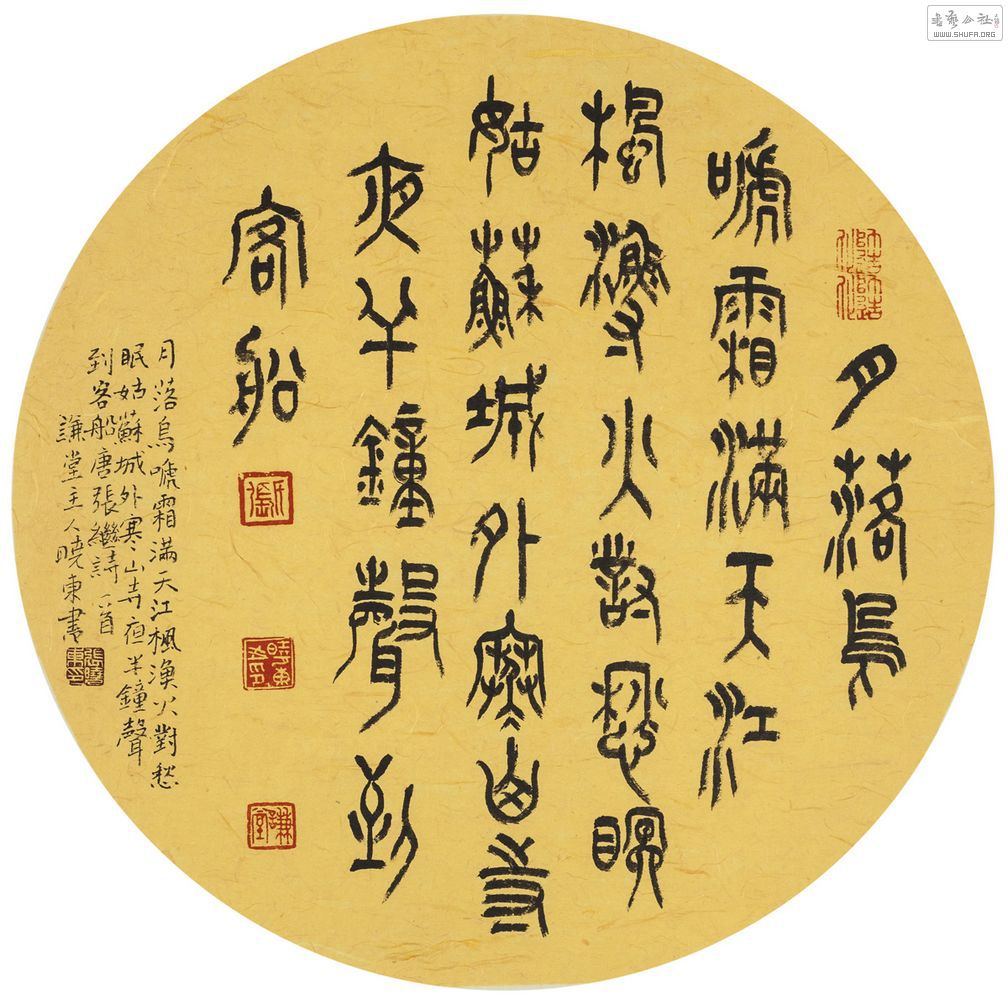 月落烏
嗁霜滿天江
楓漁火對愁眠
姑蘇城外寒山寺
夜半鐘聲到
客船
月落烏嗁霜滿天江楓漁火對愁
眠姑蘇城外寒山寺夜半鐘聲
到客船唐張繼詩一首
謙堂主人曉東書
謙堂
WWW.SHUFA.ORG